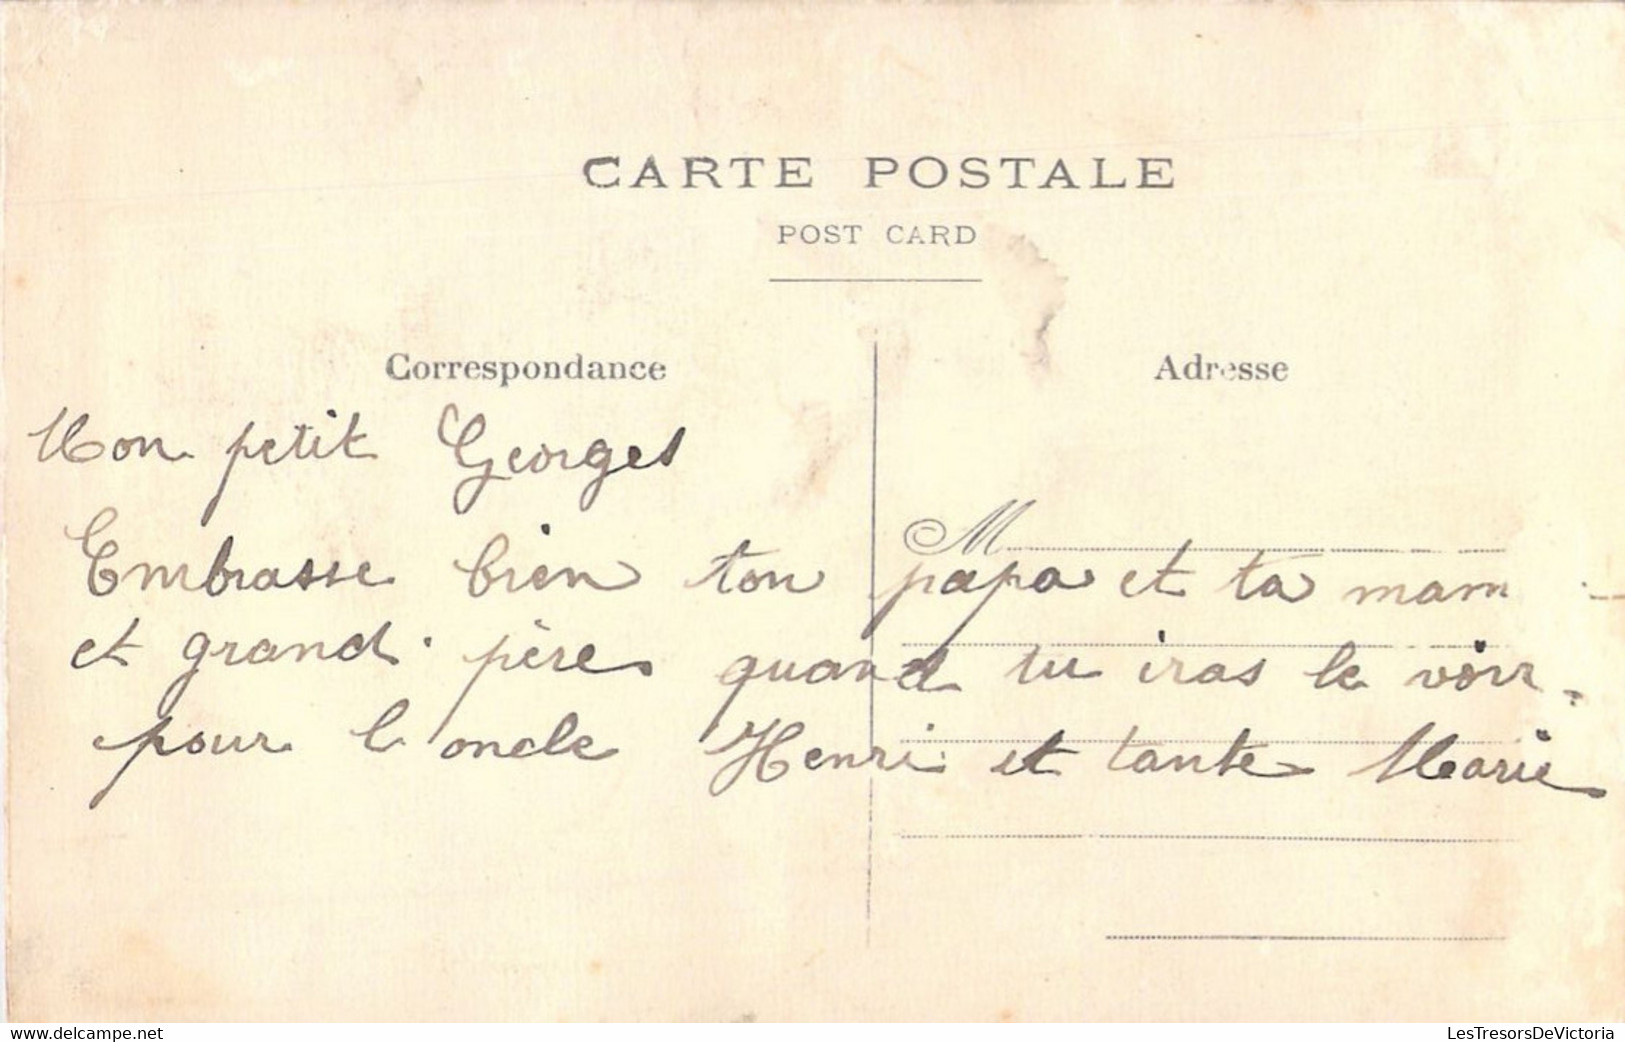 CARTE POSTALE
POST CARD
Correspondance
Adresse
Mon petit Georges
M
Embrasse bien ton papa et ta mam
et grand père quand tu iras le voir
pour l oncle Henri et tante Marie
www.delcampe.net
LesTresorsDeVictoria